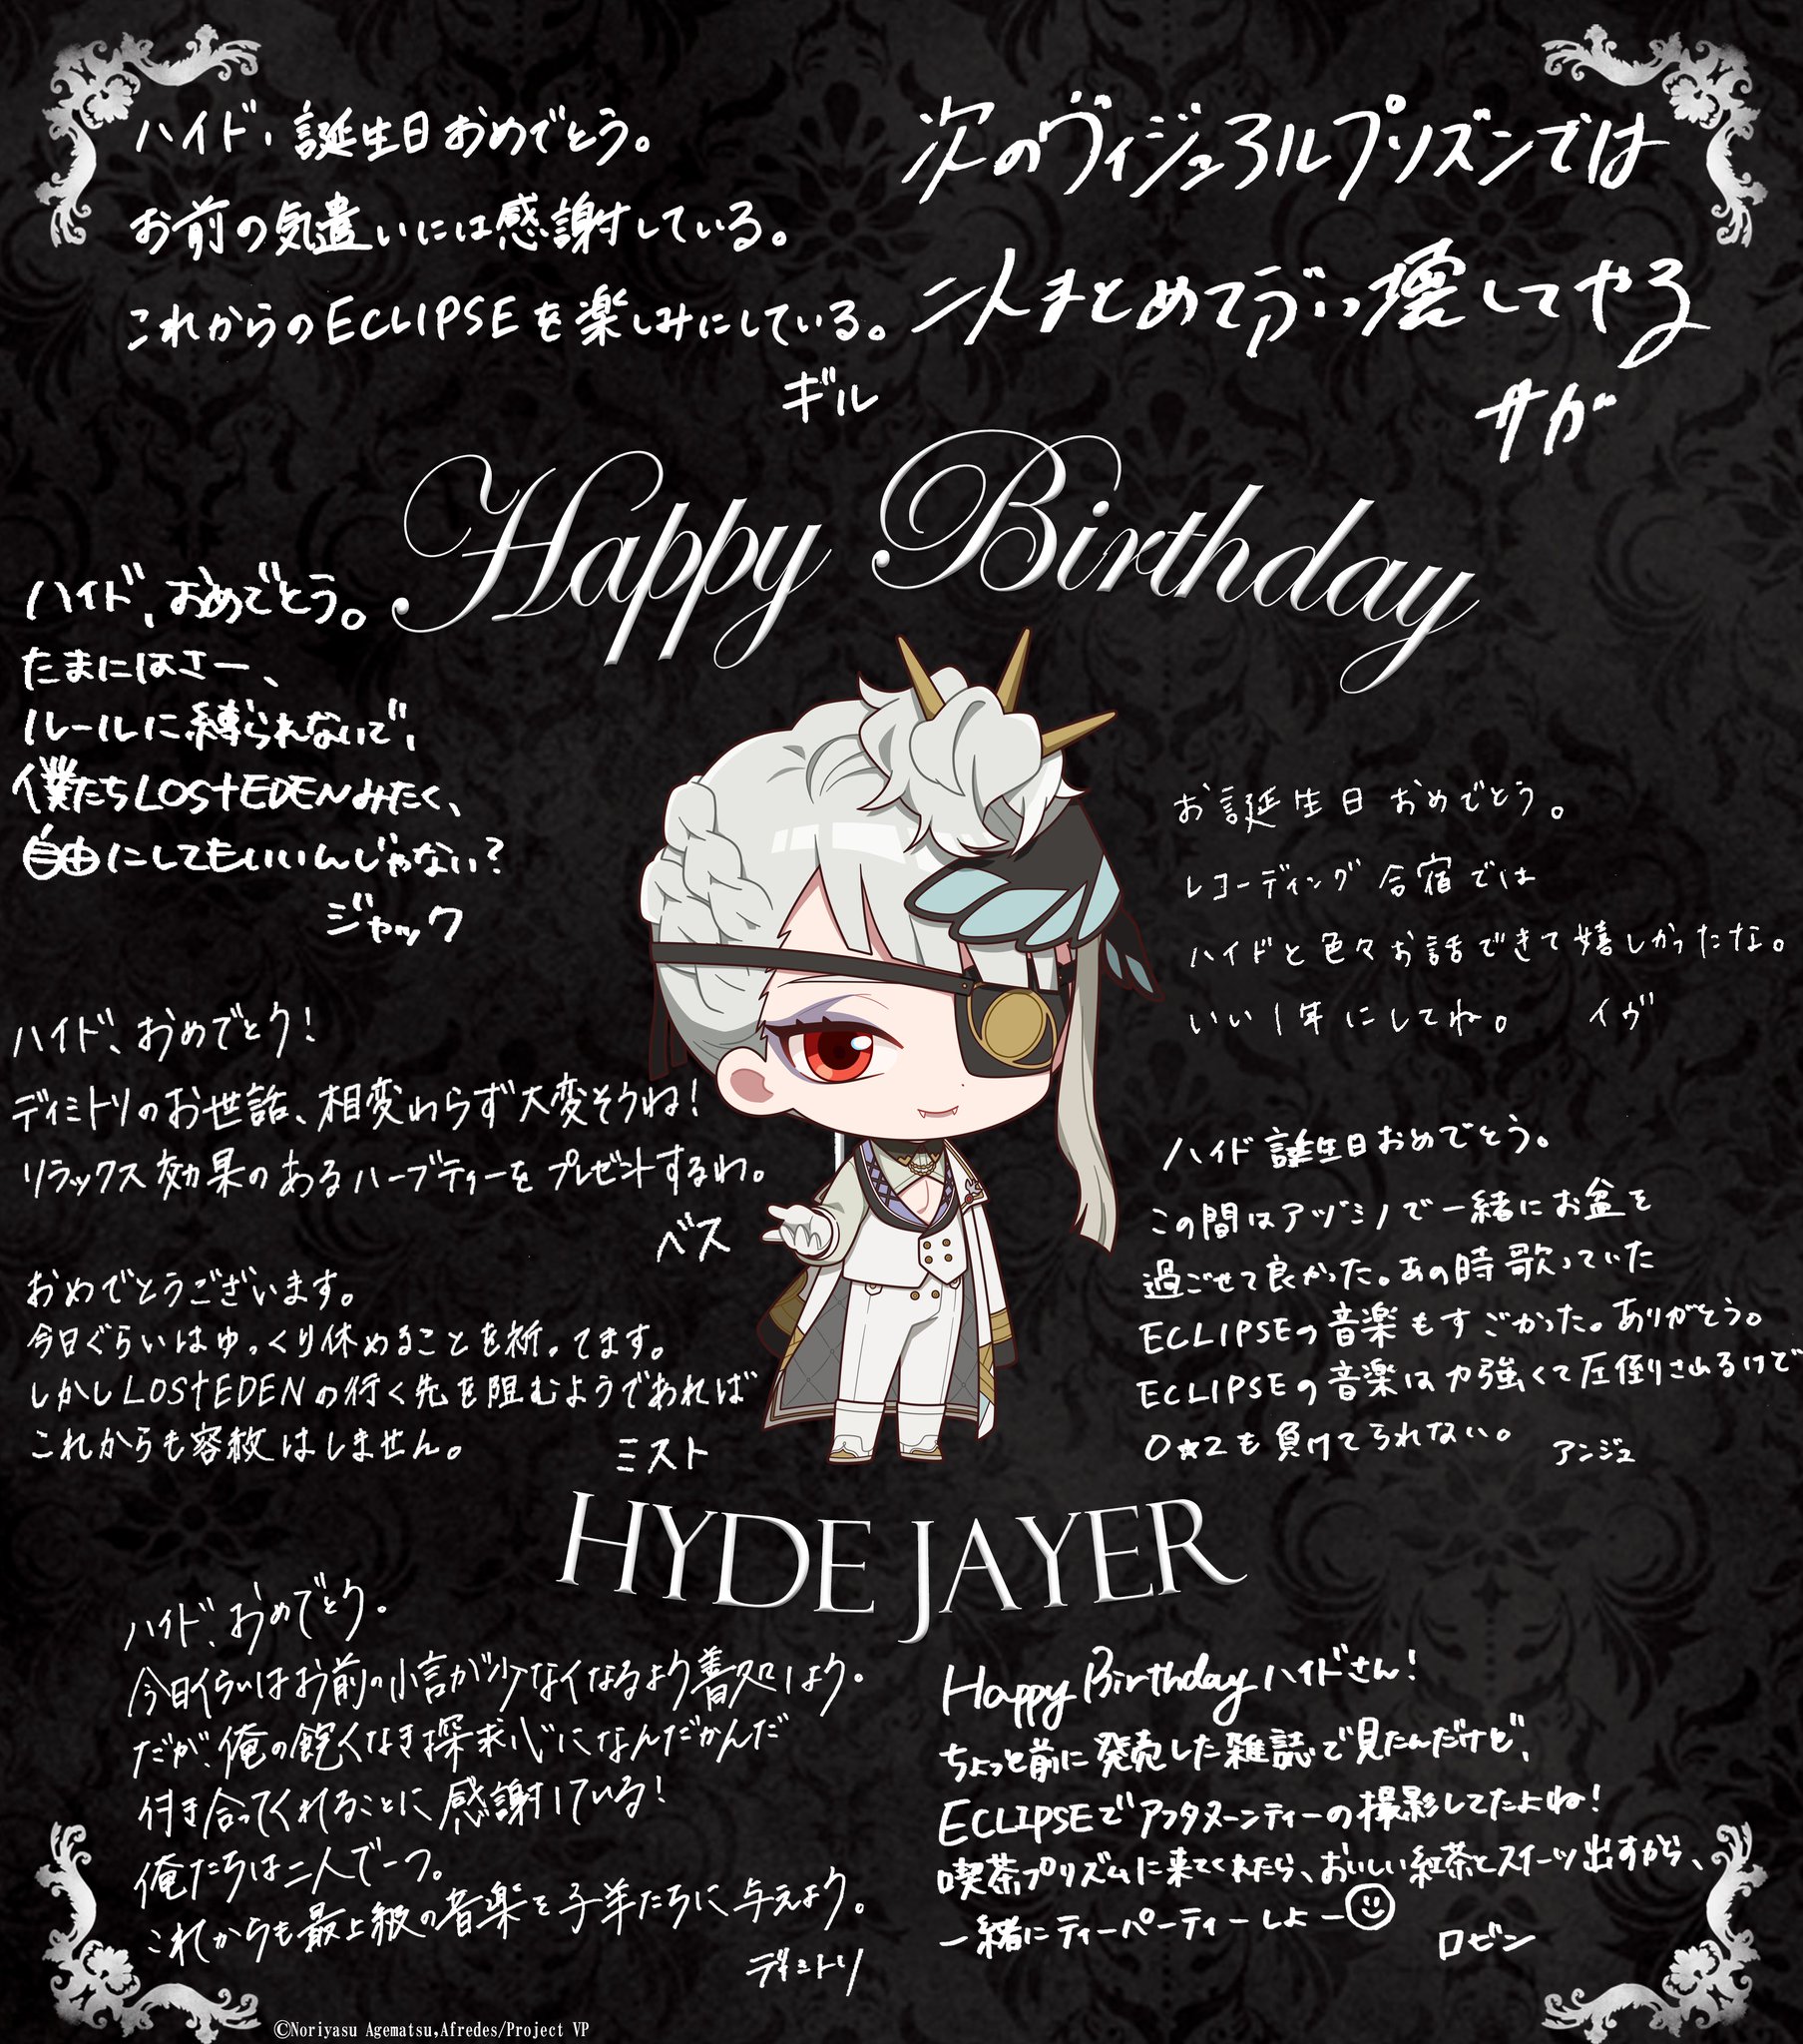 ハイド、誕生日おめでとう。
お前の気遣いには感謝している。
これからのECLIPSEを楽しみにしている。
ギル
次のヴィジュアルプリズンでは
二人まとめてぶっ壊してやる
サガ
Happy Birthday
ハイド、おめでとう。
たまにはさー、
ルールに縛られないで、
僕たちLOS†EDENみたく、
自由にしてもいいんじゃない?
ジャック
お誕生日おめでとう。
レコーディング合宿では
ハイドと色々お話できて嬉しかったな。
いい1年にしてね。
イヴ
ハイド、おめでとう!
ディミトリのお世話、相変わらず大変そうね!
リラックス効果のあるハーブティーをプレゼントするわ。
ベス
ハイド 誕生日おめでとう。
この間はアヅミノで一緒にお盆を
過ごせて良かった。あの時歌っていた
ECLIPSEの音楽もすごかった。ありがとう。
ECLIPSEの音楽は力強くて圧倒されるけど
O★Zも負けてられない。
アンジュ
おめでとうございます。
今日ぐらいはゆっくり休めることを祈ってます。
しかしLOS†EDENの行く先を阻むようであれば
これからも容赦はしません。
ミスト
HYDE JAYER
ハイド、おめでとう。
今日くらいはお前の小言が少なくなるよう善処しよう。
だが、俺の飽くなき探求心になんだかんだ
付き合ってくれることに感謝している!
俺たちは二人で一つ。
これからも最上級の音楽を子羊たちに与えよう。
ディミトリ
Happy Birthday ハイドさん!
ちょっと前に発売した雑誌で見たんだけど、
ECLIPSEでアフタヌーンティーの撮影してたよね!
喫茶プリズムに来てくれたら、おいしい紅茶とスイーツ出すから、
一緒にティーパーティーしよー
ロビン
©Noriyasu Agematsu,Afredes/Project VP